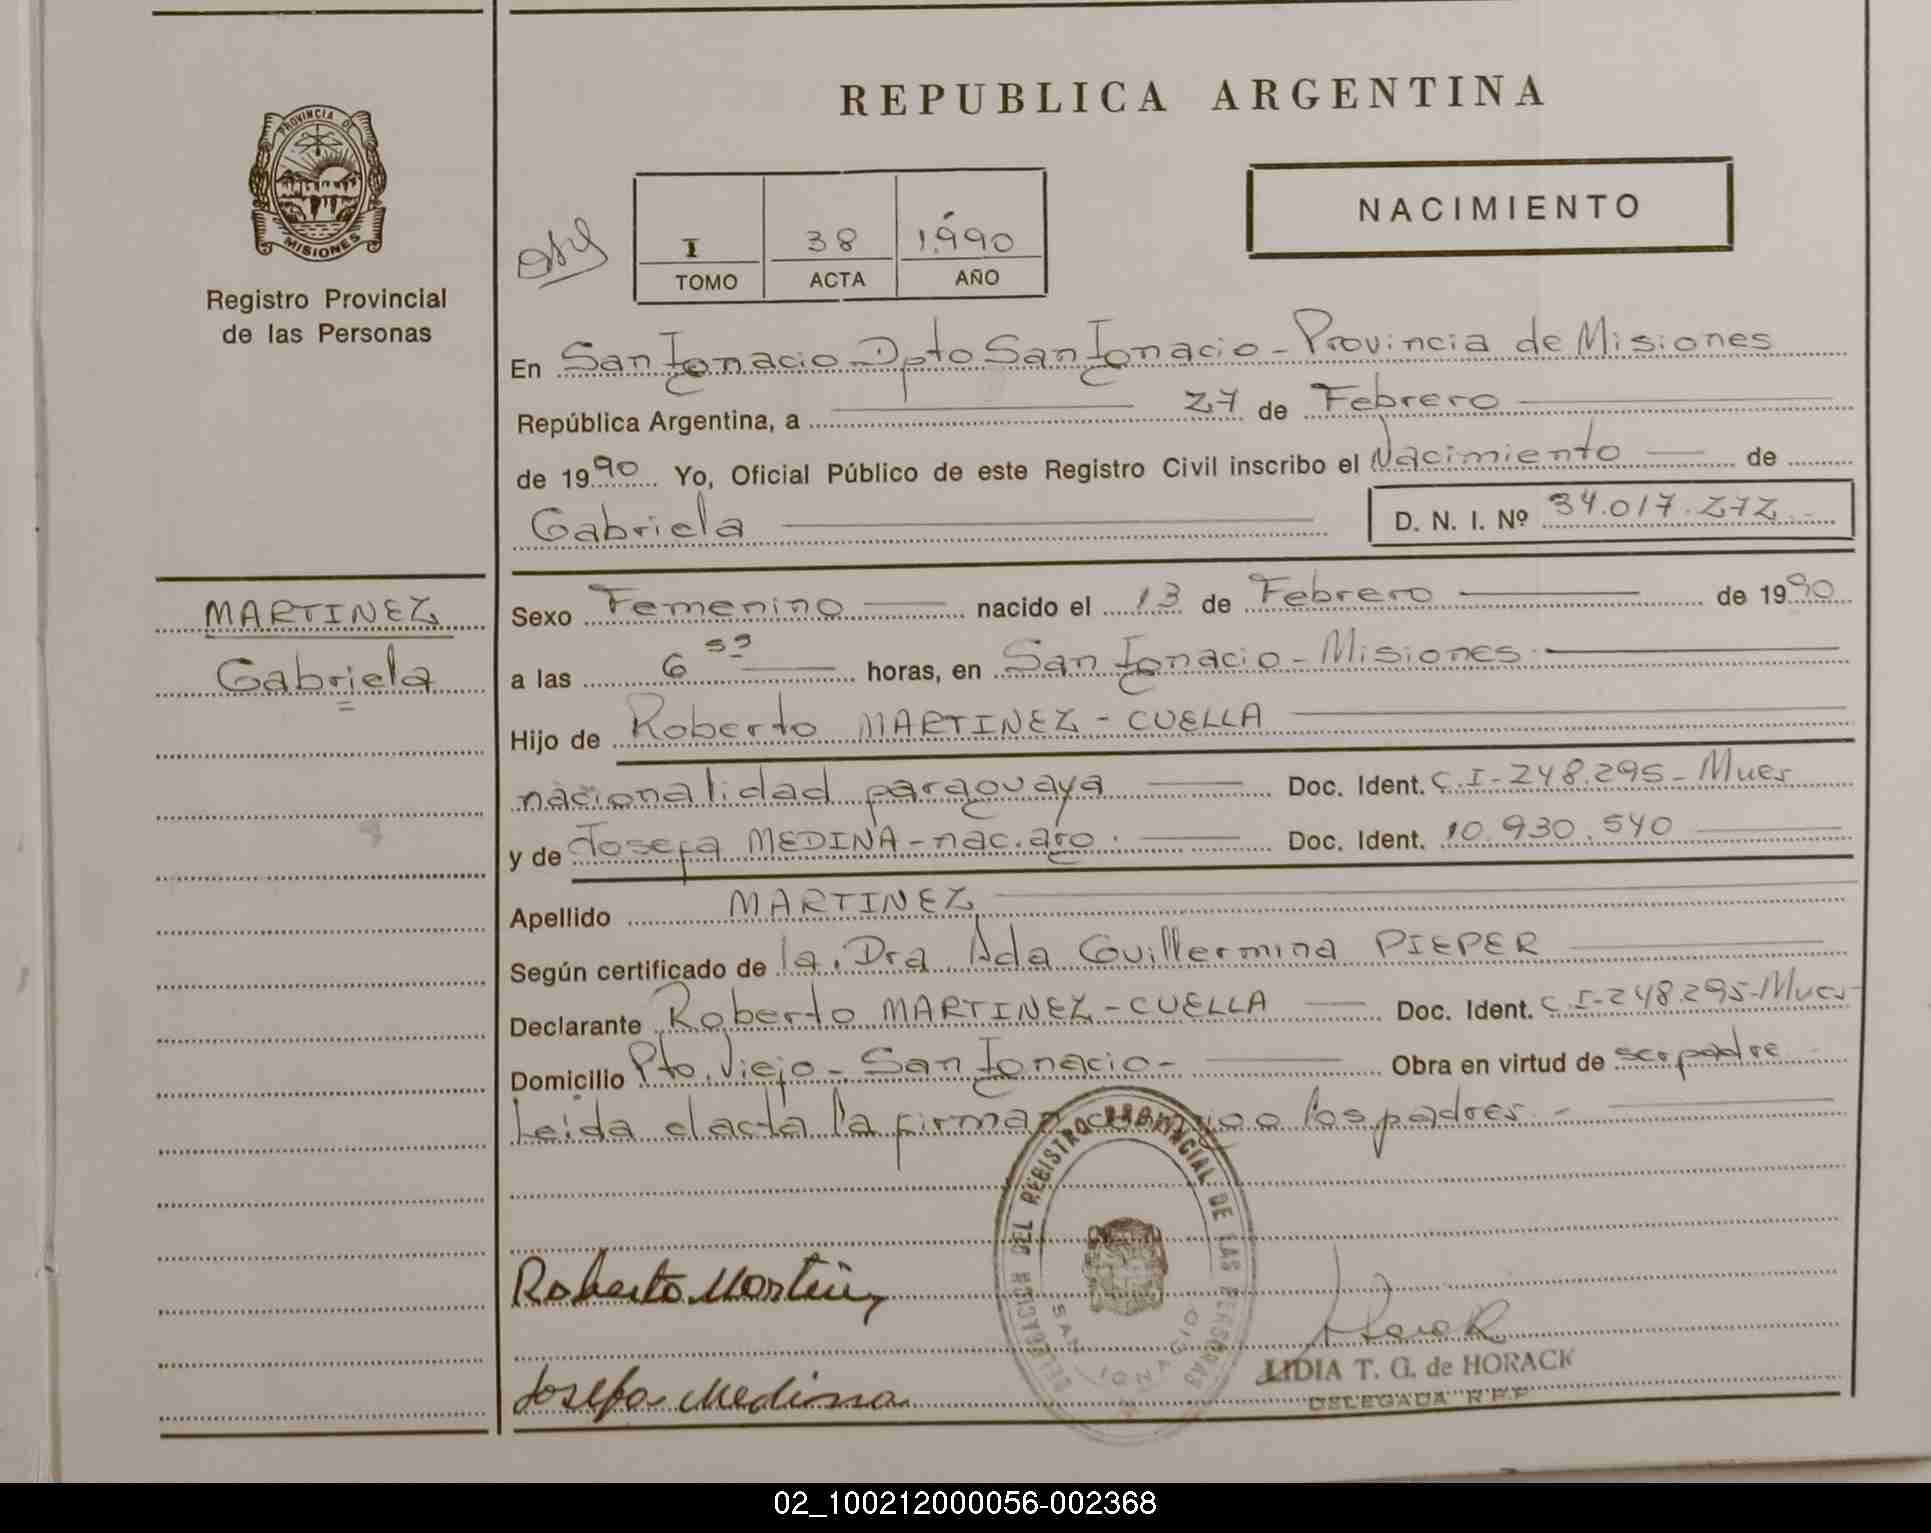 REPUBLICA ARGENTINA
PROVINCIA DE
MISIONES
Registro Provincial
de las Personas
I 38 1.990
TOMO ACTA AÑO
NACIMIENTO
En San Ignacio Dpto San Ignacio - Provincia de Misiones
República Argentina, a 27 de Febrero
de 1990 Yo, Oficial Público de este Registro Civil inscribo el Nacimiento de
Gabriela D. N. I. Nº 34.017.272.-
MARTINEZ
Gabriela
Sexo Femenino nacido el 13 de Febrero de 1990
a las 6 horas, en San Ignacio - Misiones
Hijo de Roberto MARTINEZ - CUELLA
nacionalidad paraguaya Doc. Ident. C.I-248.295-Mues
y de Josefa MEDINA - nac. arg. Doc. Ident. 10.930.540
Apellido MARTINEZ
Según certificado de la. Dra Ada Guillermina PIEPER
Declarante Roberto MARTINEZ - CUELLA Doc. Ident. C.I-248.295-Mues
Domicilio Pto. Viejo - San Ignacio - Obra en virtud de ser padre
Leida el acta la firman conmigo los padres. -
DELEGACION DEL REGISTRO PROVINCIAL DE LAS PERSONAS
SAN IGNACIO
Roberto Martinez
Josefa Medina
LIDIA T. G. de HORACK
DELEGADA R.P.P
02_100212000056-002368